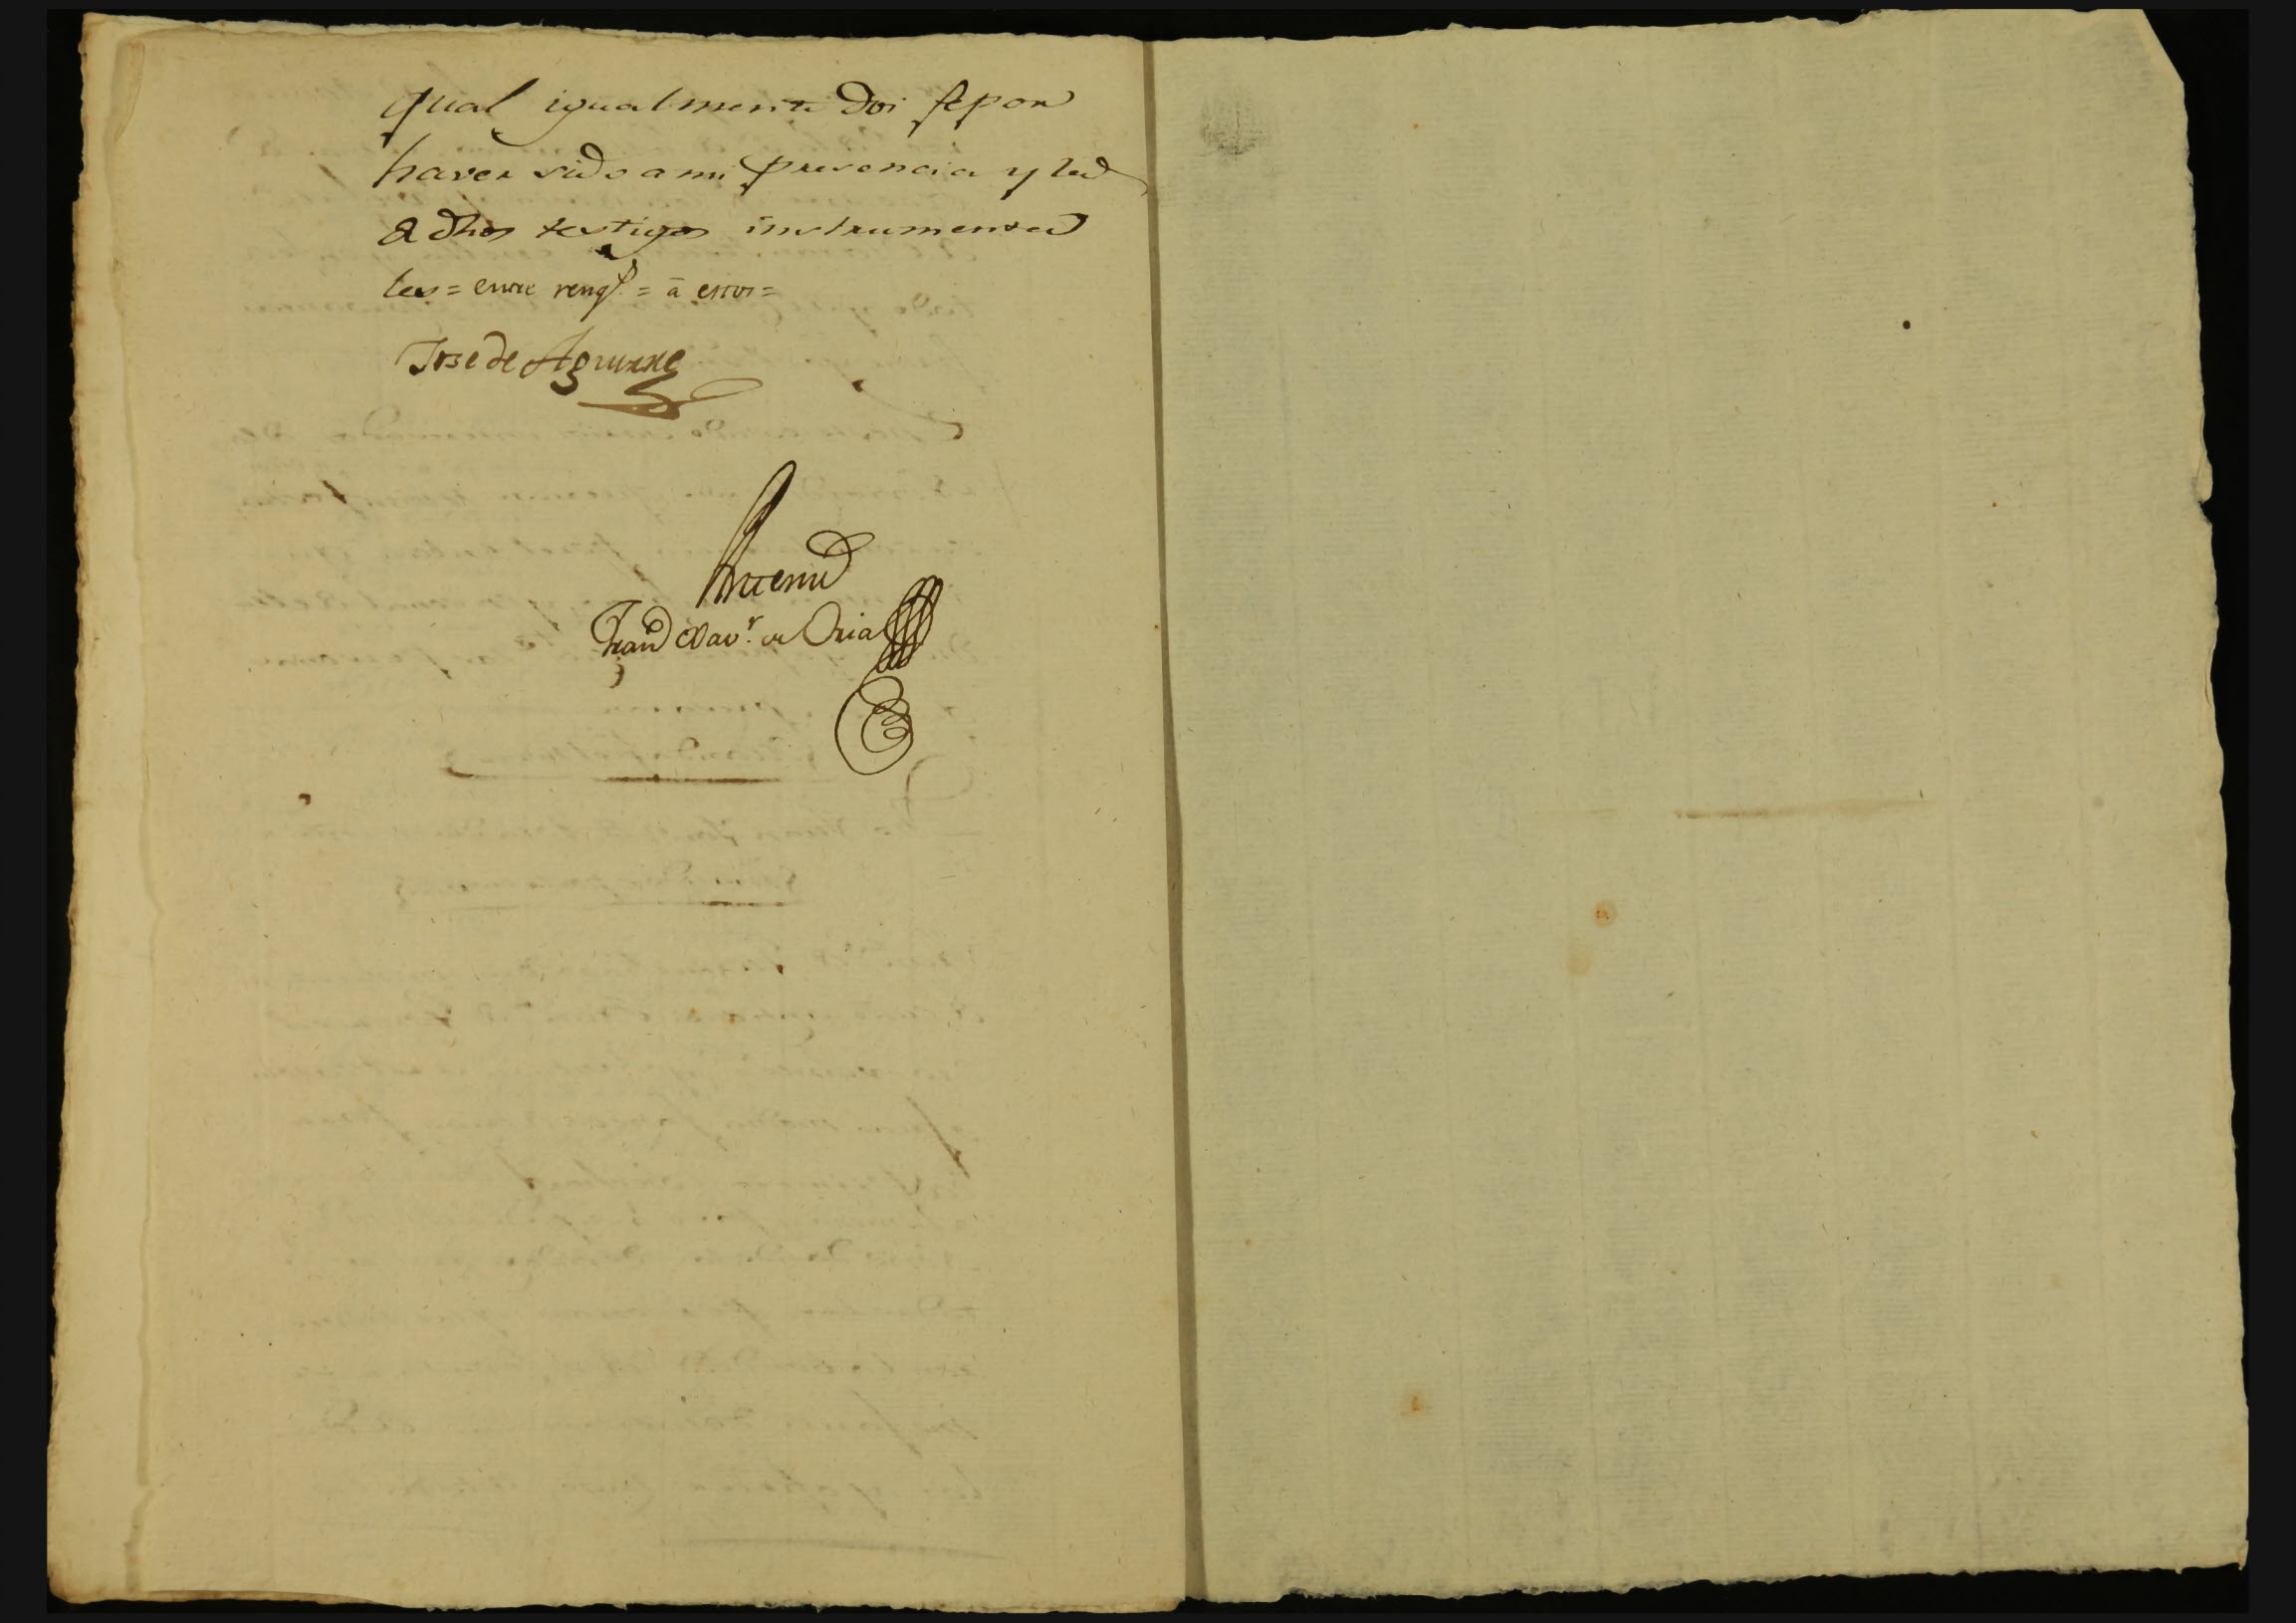 qual igualmente doi fe por
haver sido a mi presencia y la d
a dhos testigos instrumenta
les = entre rengs = â error =
Jose de Aguirre
Antemi
Franco Xavr. de Oria